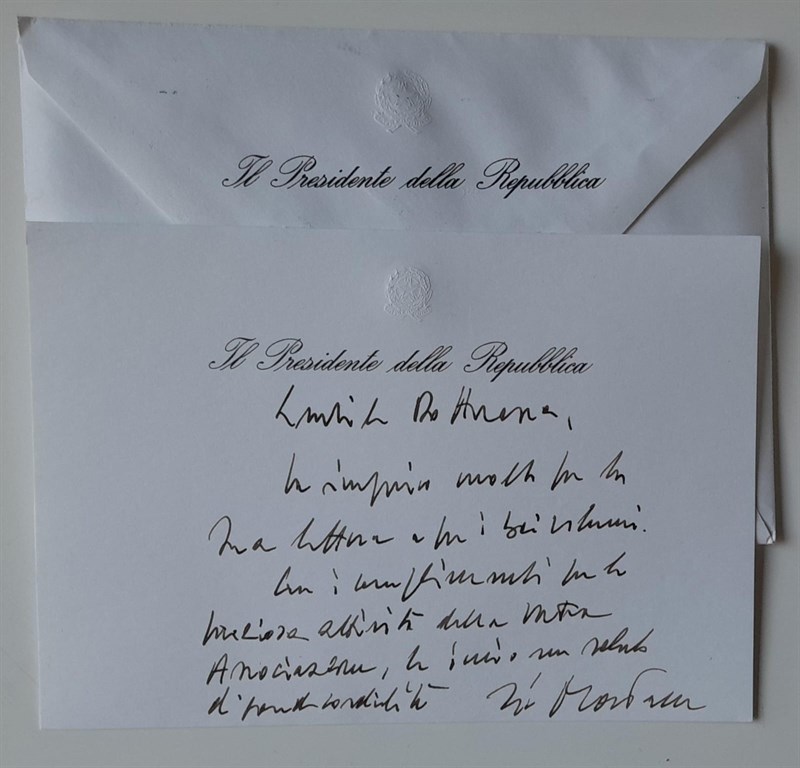 Il Presidente della Repubblica
Il Presidente della Repubblica
Gentile Dottoressa,
La ringrazio molto per la
Sua lettera e per i bei volumi.
Con i complimenti per la
preziosa attività della Vostra
Associazione, Le invio un saluto
di grande cordialità